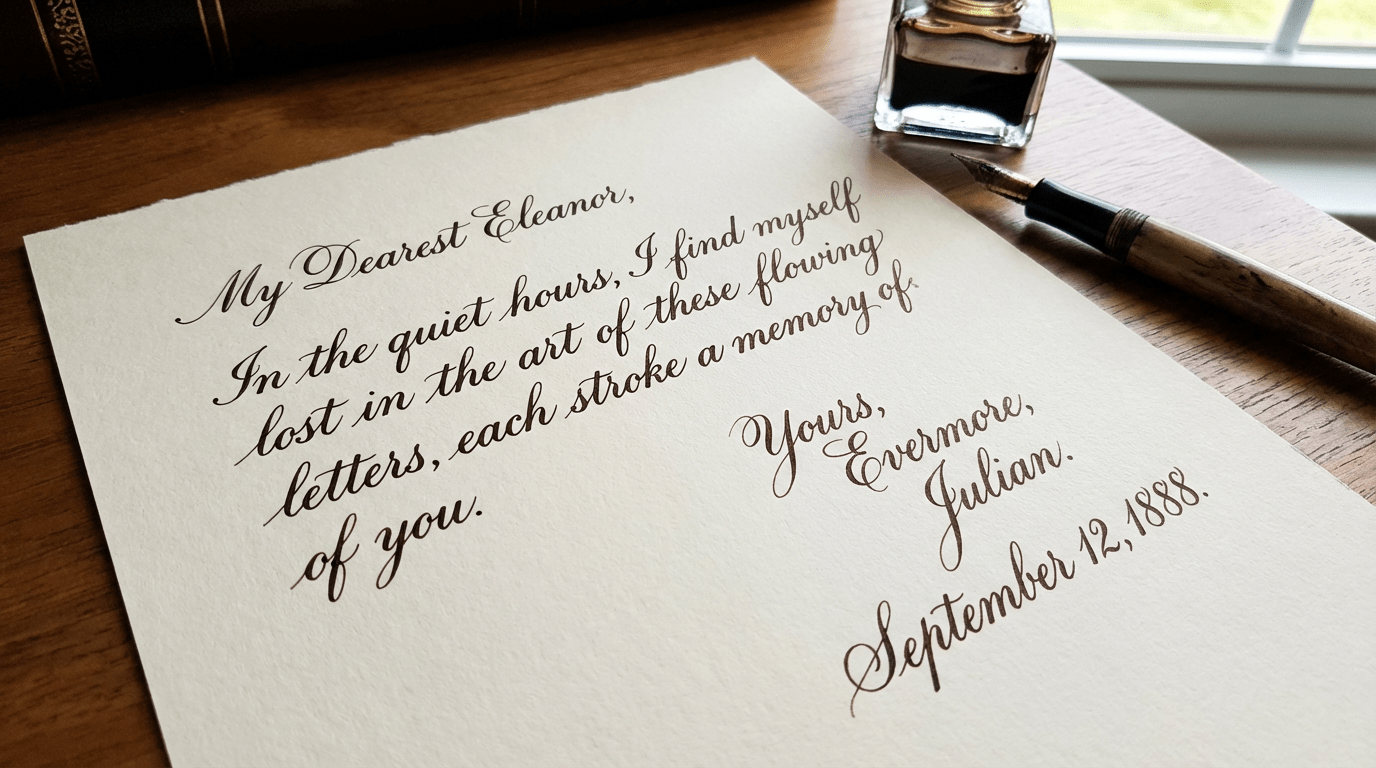 My Dearest Eleanor,
In the quiet hours, I find myself
lost in the art of these flowing
letters, each stroke a memory of.
of you.
Yours,
Evermore,
Julian.
September 12, 1888.